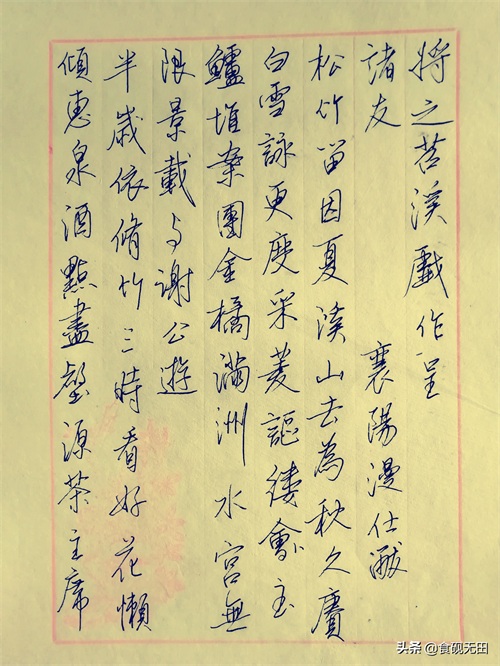 将之苕溪戯作呈
諸友　襄陽漫仕黻
松竹留因夏溪山去為秋久賡
白雪詠更度采菱謳縷會玉
鱸堆案團金橘滿洲水宮無
限景載与謝公遊
半歲依脩竹三時看好花懶
傾惠泉酒點盡壑源茶主席
头条@食砚无田